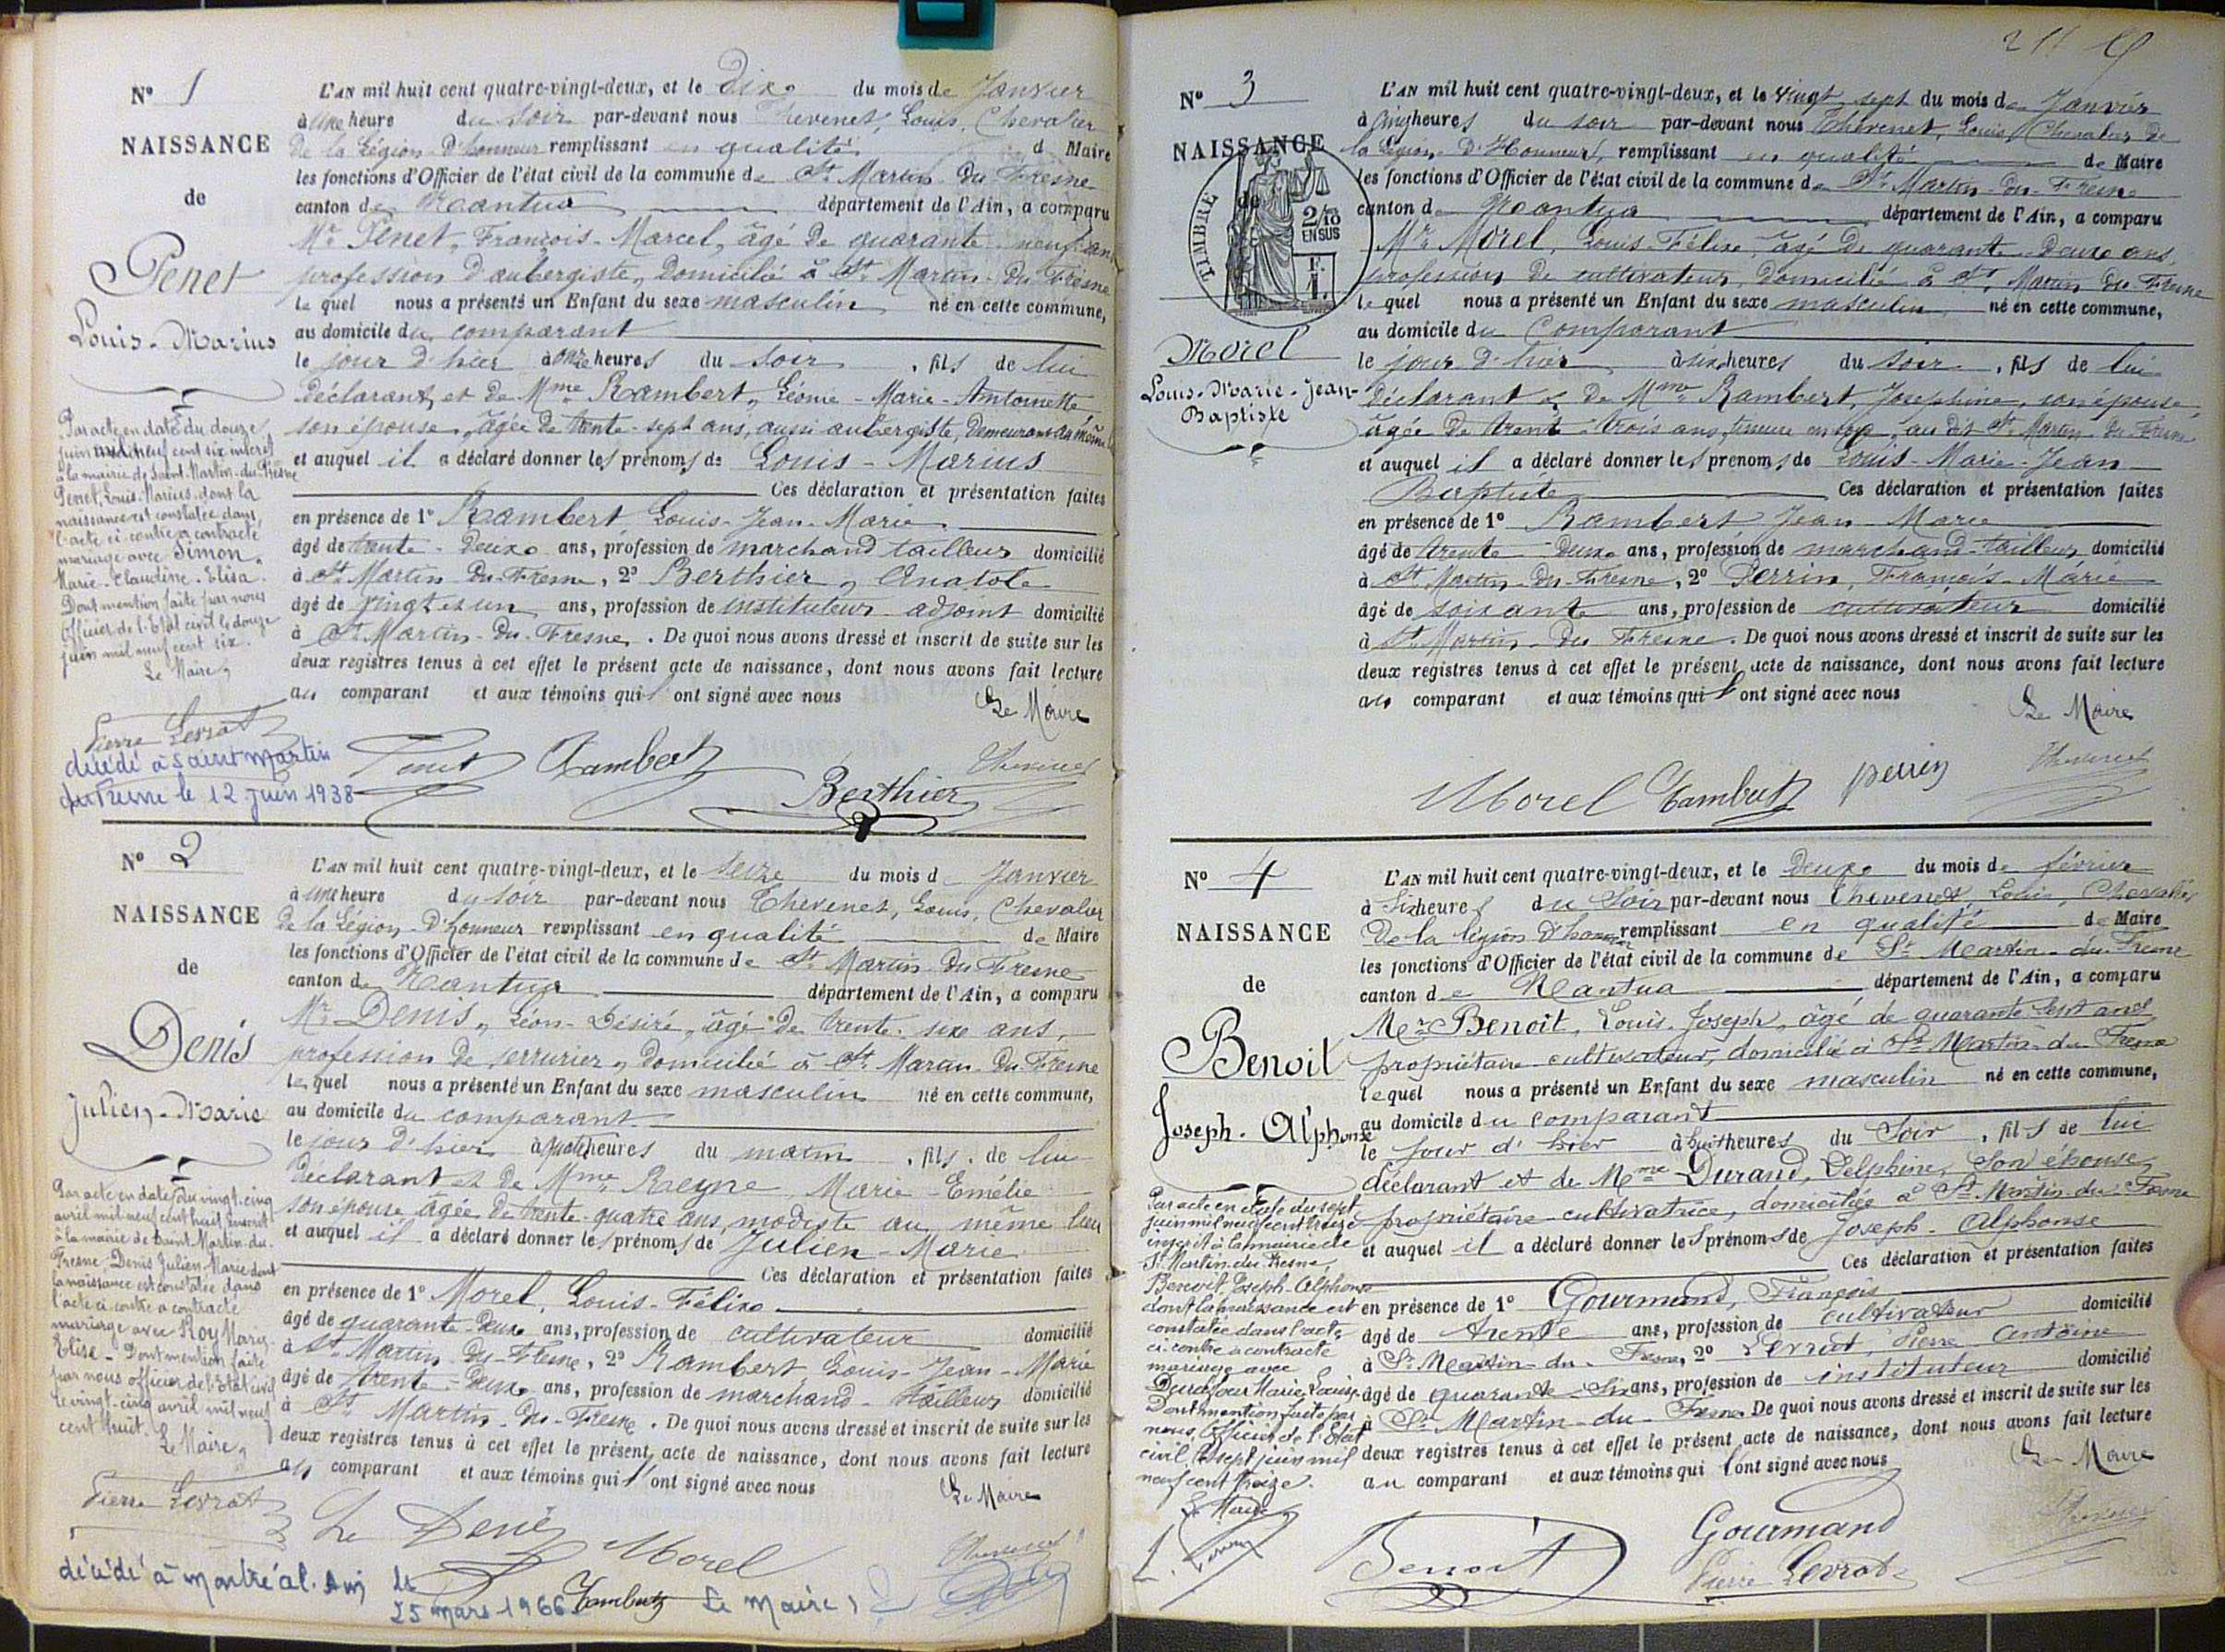 N° 1
NAISSANCE
de
Penet
Louis-Marius
L'AN mil huit cent quatre-vingt-deux, et le Dix du mois de Janvier
à une heure du soir par-devant nous Thevenet, Louis, Chevalier
de la Légion d'honneur remplissant en qualité d Maire
les fonctions d'Officier de l'état civil de la commune de St Martin-du-Fresne
canton de Nantua département de l'Ain, a comparu
Mr Penet, François-Marcel, âgé de quarante neuf ans
profession d'aubergiste, domicilié à St Martin-du-Fresne
le quel nous a présenté un Enfant du sexe masculin né en cette commune,
au domicile du comparant
le jour d'hier à onze heures du soir, fils de lui
déclarant, et de Mme Rambert, Léonie-Marie-Antoinette,
son épouse, âgée de trente-sept ans, aussi aubergiste, demeurant au même
et auquel il a déclaré donner les prénoms de Louis-Marius
Ces déclaration et présentation faites
en présence de 1° Rambert Louis-Jean-Marie
âgé de trente-deux ans, profession de marchand tailleur domicilié
à St Martin-du-Fresne, 2° Berthier, Anatole
âgé de vingt et un ans, profession de instituteur adjoint domicilié
à St Martin-du-Fresne. De quoi nous avons dressé et inscrit de suite sur les
deux registres tenus à cet effet le présent acte de naissance, dont nous avons fait lecture
au comparant et aux témoins qui l'ont signé avec nous
Le Maire
Par acte en date du douze
juin mil neuf cent six inscrit
à la mairie de Saint-Martin-du-Fresne
Penet, Louis-Marius dont la
naissance est constatée dans
l'acte ci-contre a contracté
mariage avec Simon
Marie-Claudine-Elisa.
Dont mention faite par nous
Officier de l'Etat civil le douze
juin mil neuf cent six.
Le Maire,
Pierre Levrat
décédé à Saint Martin
du Fresne le 12 juin 1938
Penet Rambert Berthier Thevenet
N° 2
NAISSANCE
de
Denis
Julien-Marie
L'AN mil huit cent quatre-vingt-deux, et le seize du mois d Janvier
à une heure du soir par-devant nous Thevenet, Louis, Chevalier
de la Légion d'honneur remplissant en qualité de Maire
les fonctions d'Officier de l'état civil de la commune de St Martin du Fresne
canton de Nantua département de l'Ain, a comparu
Mr Denis, Léon-Désiré, âgé de trente-six ans,
profession de serrurier, domicilié à St Martin-du-Fresne
le quel nous a présenté un Enfant du sexe masculin né en cette commune,
au domicile du comparant
le jour d'hier à quatre heures du matin, fils de lui
déclarant et de Mme Reyne Marie-Emélie
son épouse âgée de trente-quatre ans, modiste au même lieu
et auquel il a déclaré donner les prénoms de Julien-Marie
Ces déclaration et présentation faites
en présence de 1° Morel, Louis-Félix
âgé de quarante-deux ans, profession de cultivateur domicilié
à St Martin-du-Fresne, 2° Rambert Louis-Jean-Marie
âgé de trente-deux ans, profession de marchand-tailleur domicilié
à St Martin-du-Fresne. De quoi nous avons dressé et inscrit de suite sur les
deux registres tenus à cet effet le présent acte de naissance, dont nous avons fait lecture
au comparant et aux témoins qui l'ont signé avec nous
Le Maire
Par acte en date du vingt-cinq
avril mil neuf cent huit inscrit
à la mairie de Saint-Martin-du-
Fresne, Denis Julien Marie dont
la naissance est constatée dans
l'acte ci-contre a contracté
mariage avec Roy Marie
Elise. Dont mention faite
par nous officier de l'Etat civil
le vingt-cinq avril mil neuf
cent huit. Le Maire,
Pierre Levrat
Denis Morel Thevenet
décédé à Montréal. Ain le
25 mars 1966 Rambert Le Maire,
211
N° 3
NAISSANCE
de
TIMBRE
2/10
EN SUS
F.
1.
Morel
Louis-Marie-Jean-
Baptiste
L'AN mil huit cent quatre-vingt-deux, et le vingt sept du mois de Janvier
à cinq heures du soir par-devant nous Thevenet, Louis, Chevalier de
la Légion d'Honneur, remplissant en qualité de Maire
les fonctions d'Officier de l'état civil de la commune de St Martin-du-Fresne
canton de Nantua département de l'Ain, a comparu
Mr Morel, Louis-Félix, âgé de quarante-deux ans,
profession de cultivateur, domicilié à St Martin du Fresne
le quel nous a présenté un Enfant du sexe masculin né en cette commune,
au domicile du Comparant
le jour d'hier à six heures du soir, fils de lui
déclarant & de Mme Rambert, Josephine, son épouse,
âgée de trente-trois ans, au dit St Martin-du-Fresne
et auquel il a déclaré donner les prénoms de Louis-Marie-Jean-
Baptiste Ces déclaration et présentation faites
en présence de 1° Rambert Jean-Marie
âgé de trente-deux ans, profession de marchand-tailleur domicilié
à St Martin-du-Fresne, 2° Perrin, François-Marie
âgé de soixante ans, profession de cultivateur domicilié
à St Martin-du-Fresne. De quoi nous avons dressé et inscrit de suite sur les
deux registres tenus à cet effet le présent acte de naissance, dont nous avons fait lecture
au comparant et aux témoins qui l'ont signé avec nous
Le Maire
Morel Rambert perrin Thevenet
N° 4
NAISSANCE
de
Benoit
Joseph-Alphonse
L'AN mil huit cent quatre-vingt-deux, et le Deux du mois de février
à six heures du Soir par-devant nous Thevenet, Louis, Chevalier
De la légion d'honneur remplissant en qualité de Maire
les fonctions d'Officier de l'état civil de la commune de St Martin-du-Fresne
canton de Nantua département de l'Ain, a comparu
Mer Benoit, Louis-Joseph, âgé de quarante-sept ans
propriétaire-cultivateur, domicilié à St Martin-du-Fresne
lequel nous a présenté un Enfant du sexe masculin né en cette commune,
au domicile du comparant
le jour d'hier à huit heures du Soir, fils de lui
déclarant et de Mme Durand, Delphine, Son épouse
propriétaire-cultivatrice, domiciliée à St Martin-du-Fresne
et auquel il a déclaré donner les prénoms de Joseph-Alphonse
Ces déclaration et présentation faites
en présence de 1° Gourmand, François
âgé de trente ans, profession de cultivateur domicilié
à St Martin-du-Fresne, 2° Levrat, Pierre Antoine
âgé de quarante-six ans, profession de instituteur domicilié
à St Martin-du-Fresne. De quoi nous avons dressé et inscrit de suite sur les
deux registres tenus à cet effet le présent acte de naissance, dont nous avons fait lecture
au comparant et aux témoins qui l'ont signé avec nous
Le Maire
Par acte en date du sept
juin mil neuf cent treize
inscrit à la mairie de
St Martin-du-Fresne,
Benoit Joseph-Alphonse
dont la naissance est
constatée dans l'acte
ci-contre a contracté
mariage avec
Marie Louise
Dont mention faite par
nous, Officier de l'Etat
civil, le sept juin mil
neuf cent treize.
Le Maire
Benoit Gourmand Thevenet
Pierre Levrat